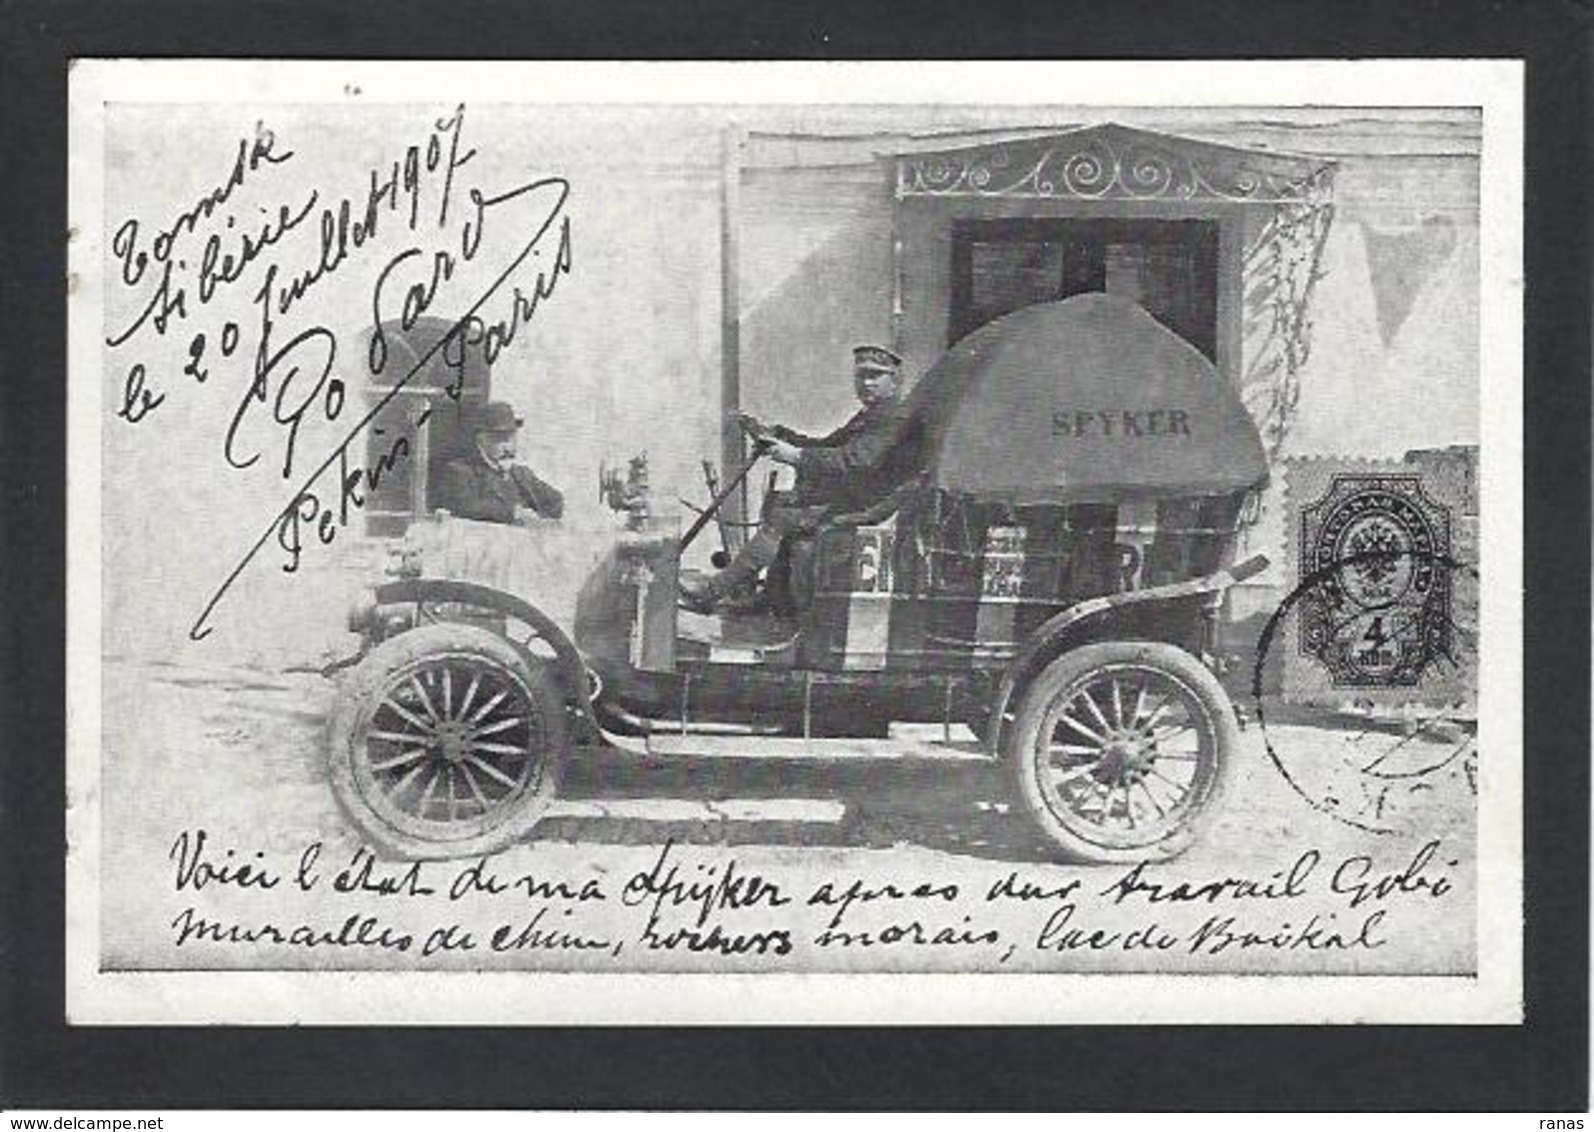 Tomsk
Sibérie
le 20 Juillet 1907
Godard
Pekin-Paris
SPYKER
4
КОП.
Voici l'état de ma Spijker apres dur travail Gobi
murailles de chine, rochers marais, lac de Baikal
www.delcampe.net
ranas